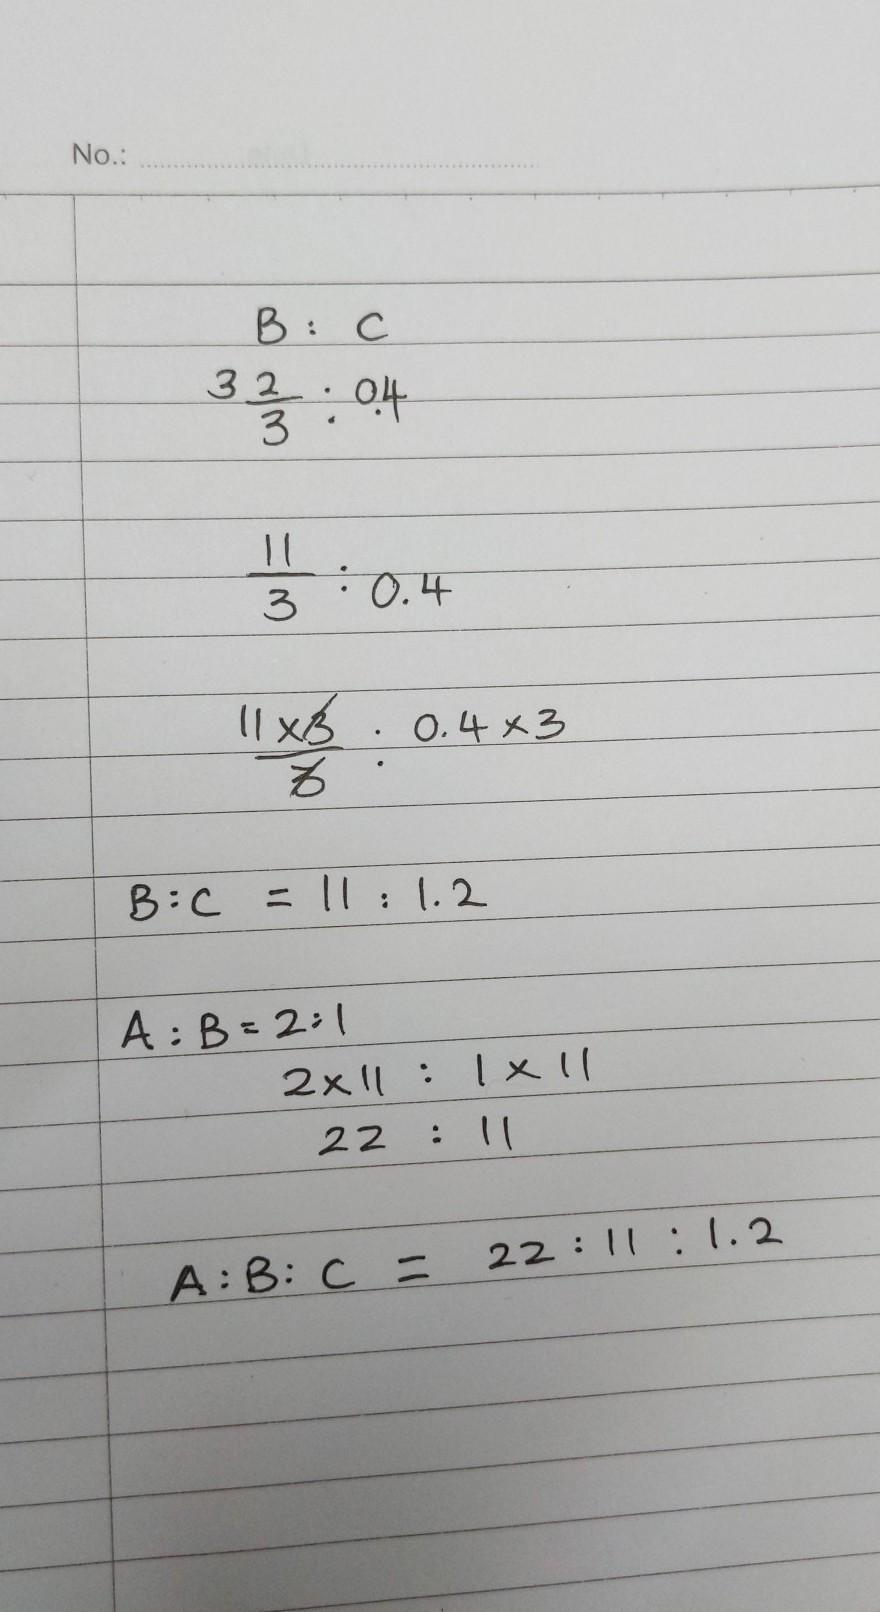 No.:
B : C
3 2/3 : 0.4
11/3 : 0.4
11 x 3/3 : 0.4 x 3
B : C = 11 : 1.2
A : B = 2 : 1
2 x 11 : 1 x 11
22 : 11
A : B : C = 22 : 11 : 1.2